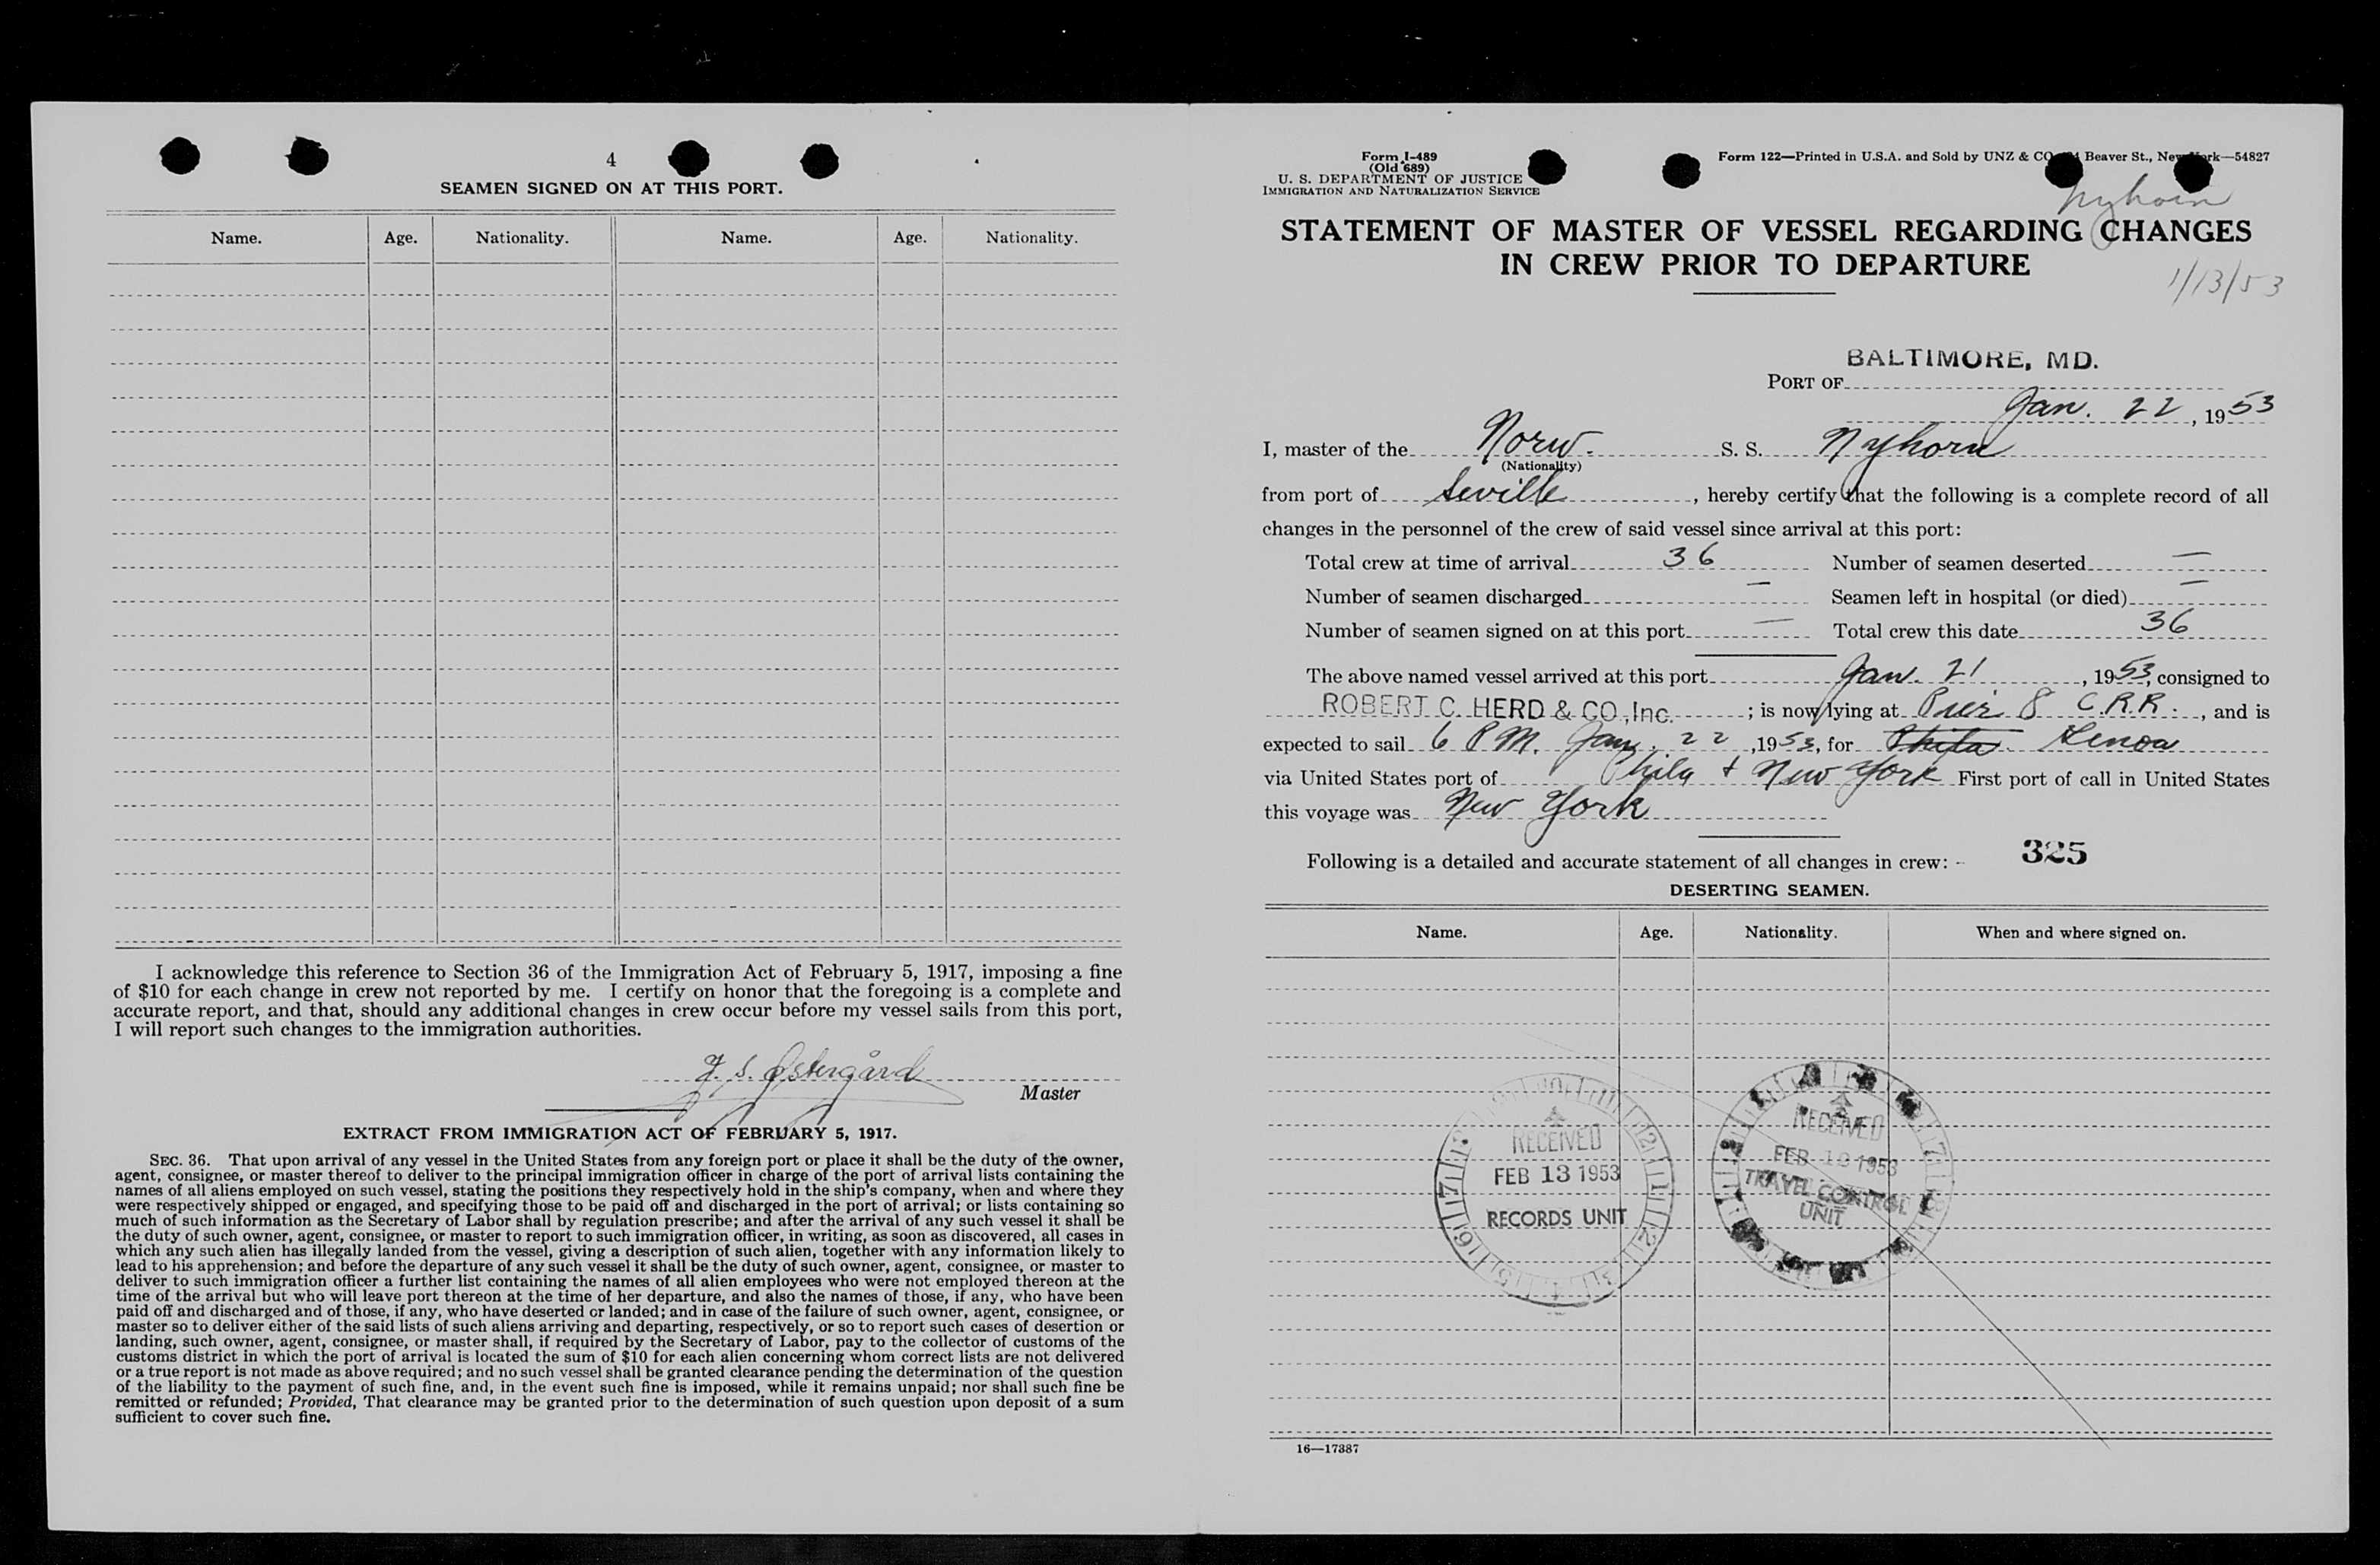 4
SEAMEN SIGNED ON AT THIS PORT.
Name. Age. Nationality. Name. Age. Nationality.
I acknowledge this reference to Section 36 of the Immigration Act of February 5, 1917, imposing a fine
of $10 for each change in crew not reported by me. I certify on honor that the foregoing is a complete and
accurate report, and that, should any additional changes in crew occur before my vessel sails from this port,
I will report such changes to the immigration authorities.
S. Østergård
Master
EXTRACT FROM IMMIGRATION ACT OF FEBRUARY 5, 1917.
SEC. 36. That upon arrival of any vessel in the United States from any foreign port or place it shall be the duty of the owner,
agent, consignee, or master thereof to deliver to the principal immigration officer in charge of the port of arrival lists containing the
names of all aliens employed on such vessel, stating the positions they respectively hold in the ship's company, when and where they
were respectively shipped or engaged, and specifying those to be paid off and discharged in the port of arrival; or lists containing so
much of such information as the Secretary of Labor shall by regulation prescribe; and after the arrival of any such vessel it shall be
the duty of such owner, agent, consignee, or master to report to such immigration officer, in writing, as soon as discovered, all cases in
which any such alien has illegally landed from the vessel, giving a description of such alien, together with any information likely to
lead to his apprehension; and before the departure of any such vessel it shall be the duty of such owner, agent, consignee, or master to
deliver to such immigration officer a further list containing the names of all alien employees who were not employed thereon at the
time of the arrival but who will leave port thereon at the time of her departure, and also the names of those, if any, who have been
paid off and discharged and of those, if any, who have deserted or landed; and in case of the failure of such owner, agent, consignee, or
master so to deliver either of the said lists of such aliens arriving and departing, respectively, or so to report such cases of desertion or
landing, such owner, agent, consignee, or master shall, if required by the Secretary of Labor, pay to the collector of customs of the
customs district in which the port of arrival is located the sum of $10 for each alien concerning whom correct lists are not delivered
or a true report is not made as above required; and no such vessel shall be granted clearance pending the determination of the question
of the liability to the payment of such fine, and, in the event such fine is imposed, while it remains unpaid; nor shall such fine be
remitted or refunded; Provided, That clearance may be granted prior to the determination of such question upon deposit of a sum
sufficient to cover such fine.
Form I-489
(Old 689)
U. S. DEPARTMENT OF JUSTICE
IMMIGRATION AND NATURALIZATION SERVICE
Form 122—Printed in U.S.A. and Sold by UNZ & CO. Beaver St., New York—54827
Nyhorn
STATEMENT OF MASTER OF VESSEL REGARDING CHANGES
IN CREW PRIOR TO DEPARTURE
1/13/53
BALTIMORE, MD.
PORT OF
Jan. 22, 1953
I, master of the Norw. S. S. Nyhorn
(Nationality)
from port of Seville, hereby certify that the following is a complete record of all
changes in the personnel of the crew of said vessel since arrival at this port:
Total crew at time of arrival 36 Number of seamen deserted —
Number of seamen discharged — Seamen left in hospital (or died) —
Number of seamen signed on at this port — Total crew this date 36
The above named vessel arrived at this port Jan. 21, 1953, consigned to
ROBERT C. HERD & CO., Inc.; is now lying at Pier 8 C.R.R., and is
expected to sail 6 PM. Jan. 22, 1953, for Phila. Genoa
via United States port of Phila + New York First port of call in United States
this voyage was New York
Following is a detailed and accurate statement of all changes in crew: -
325
DESERTING SEAMEN.
Name. Age. Nationality. When and where signed on.
RECEIVED
FEB 13 1953
RECORDS UNIT
RECEIVED
FEB 1953
TRAVEL CONTROL
UNIT
16—17387